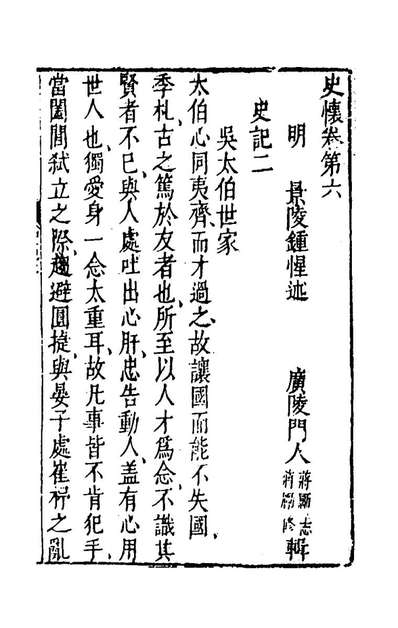 史懷卷第六
明　景陵鍾惺述　廣陵門人蔣　志蔣　修輯
史記二
吳太伯世家
太伯心同夷齊而才過之故讓國而能不失國
季札古之篤於友者也所至以人才爲念不識其
賢者不已與人處吐出心肝忠告動人蓋有心用
世人也獨愛身一念太重耳故凡事皆不肯犯手
當闔閭弒立之際趨避圓捷與晏子處崔杼之亂